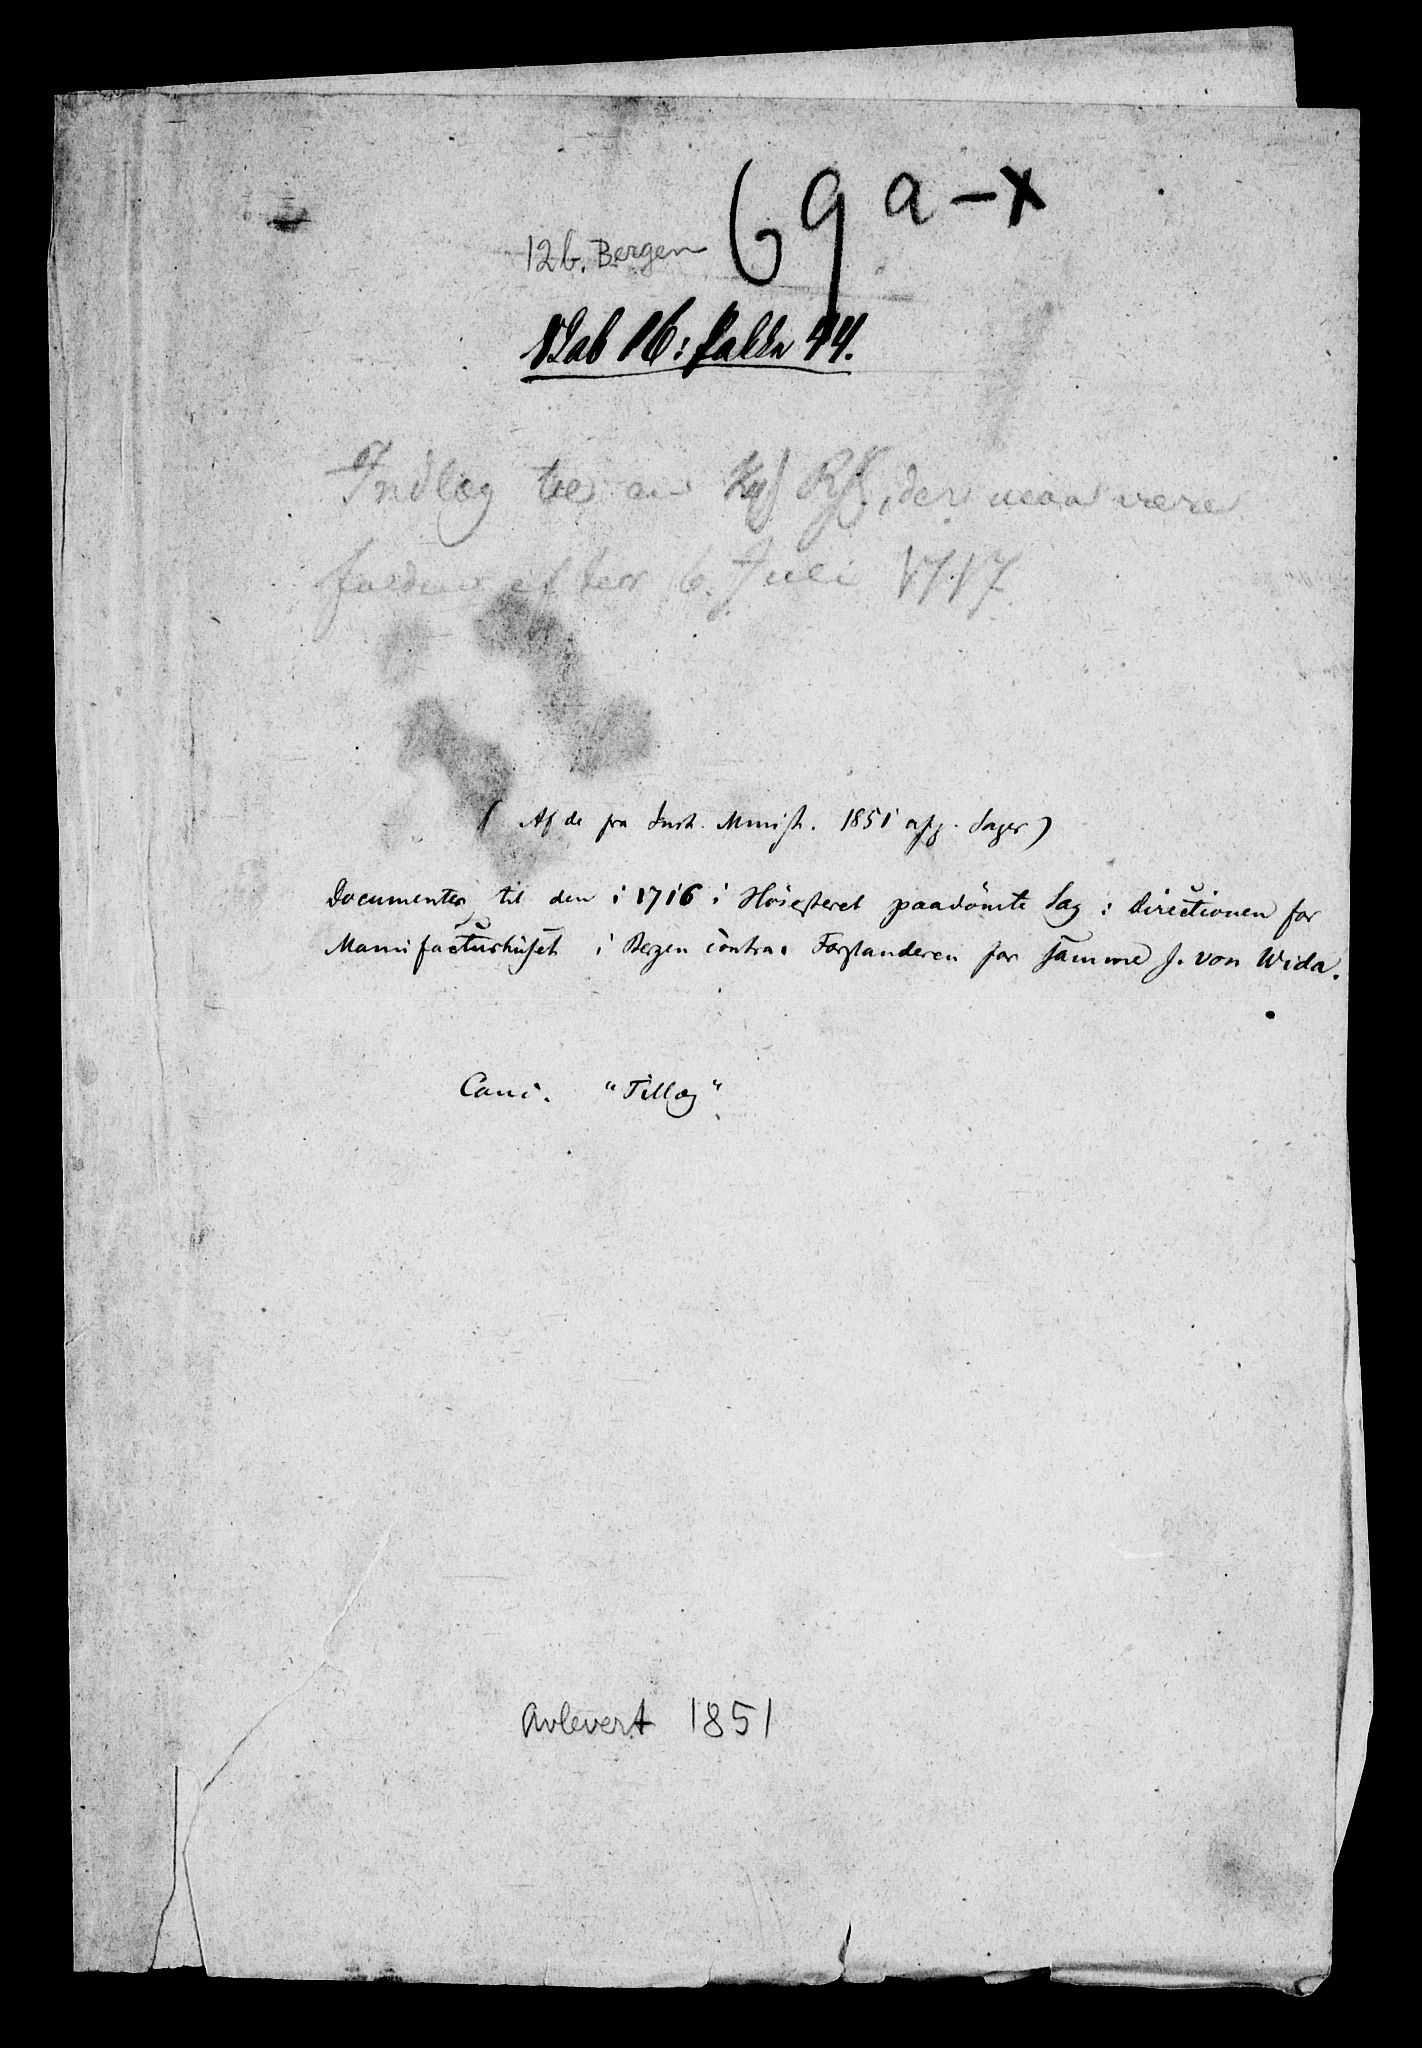 69 a-x
12b. Bergen
Skab 16: Pakke 44.
Indlæg til en Kgl RK, der maa være
falden efter 6. Juli 1717
( Af de fra Just. Minist. 1851 afg. Sager )
Documenter til den i 1716 i Höiesteret paadömte Sag : Directionen for
Manufacturhuset i Bergen contra Forstanderen for samme J. von Wida.
Canc. "Tillæg"
Avlevert 1851